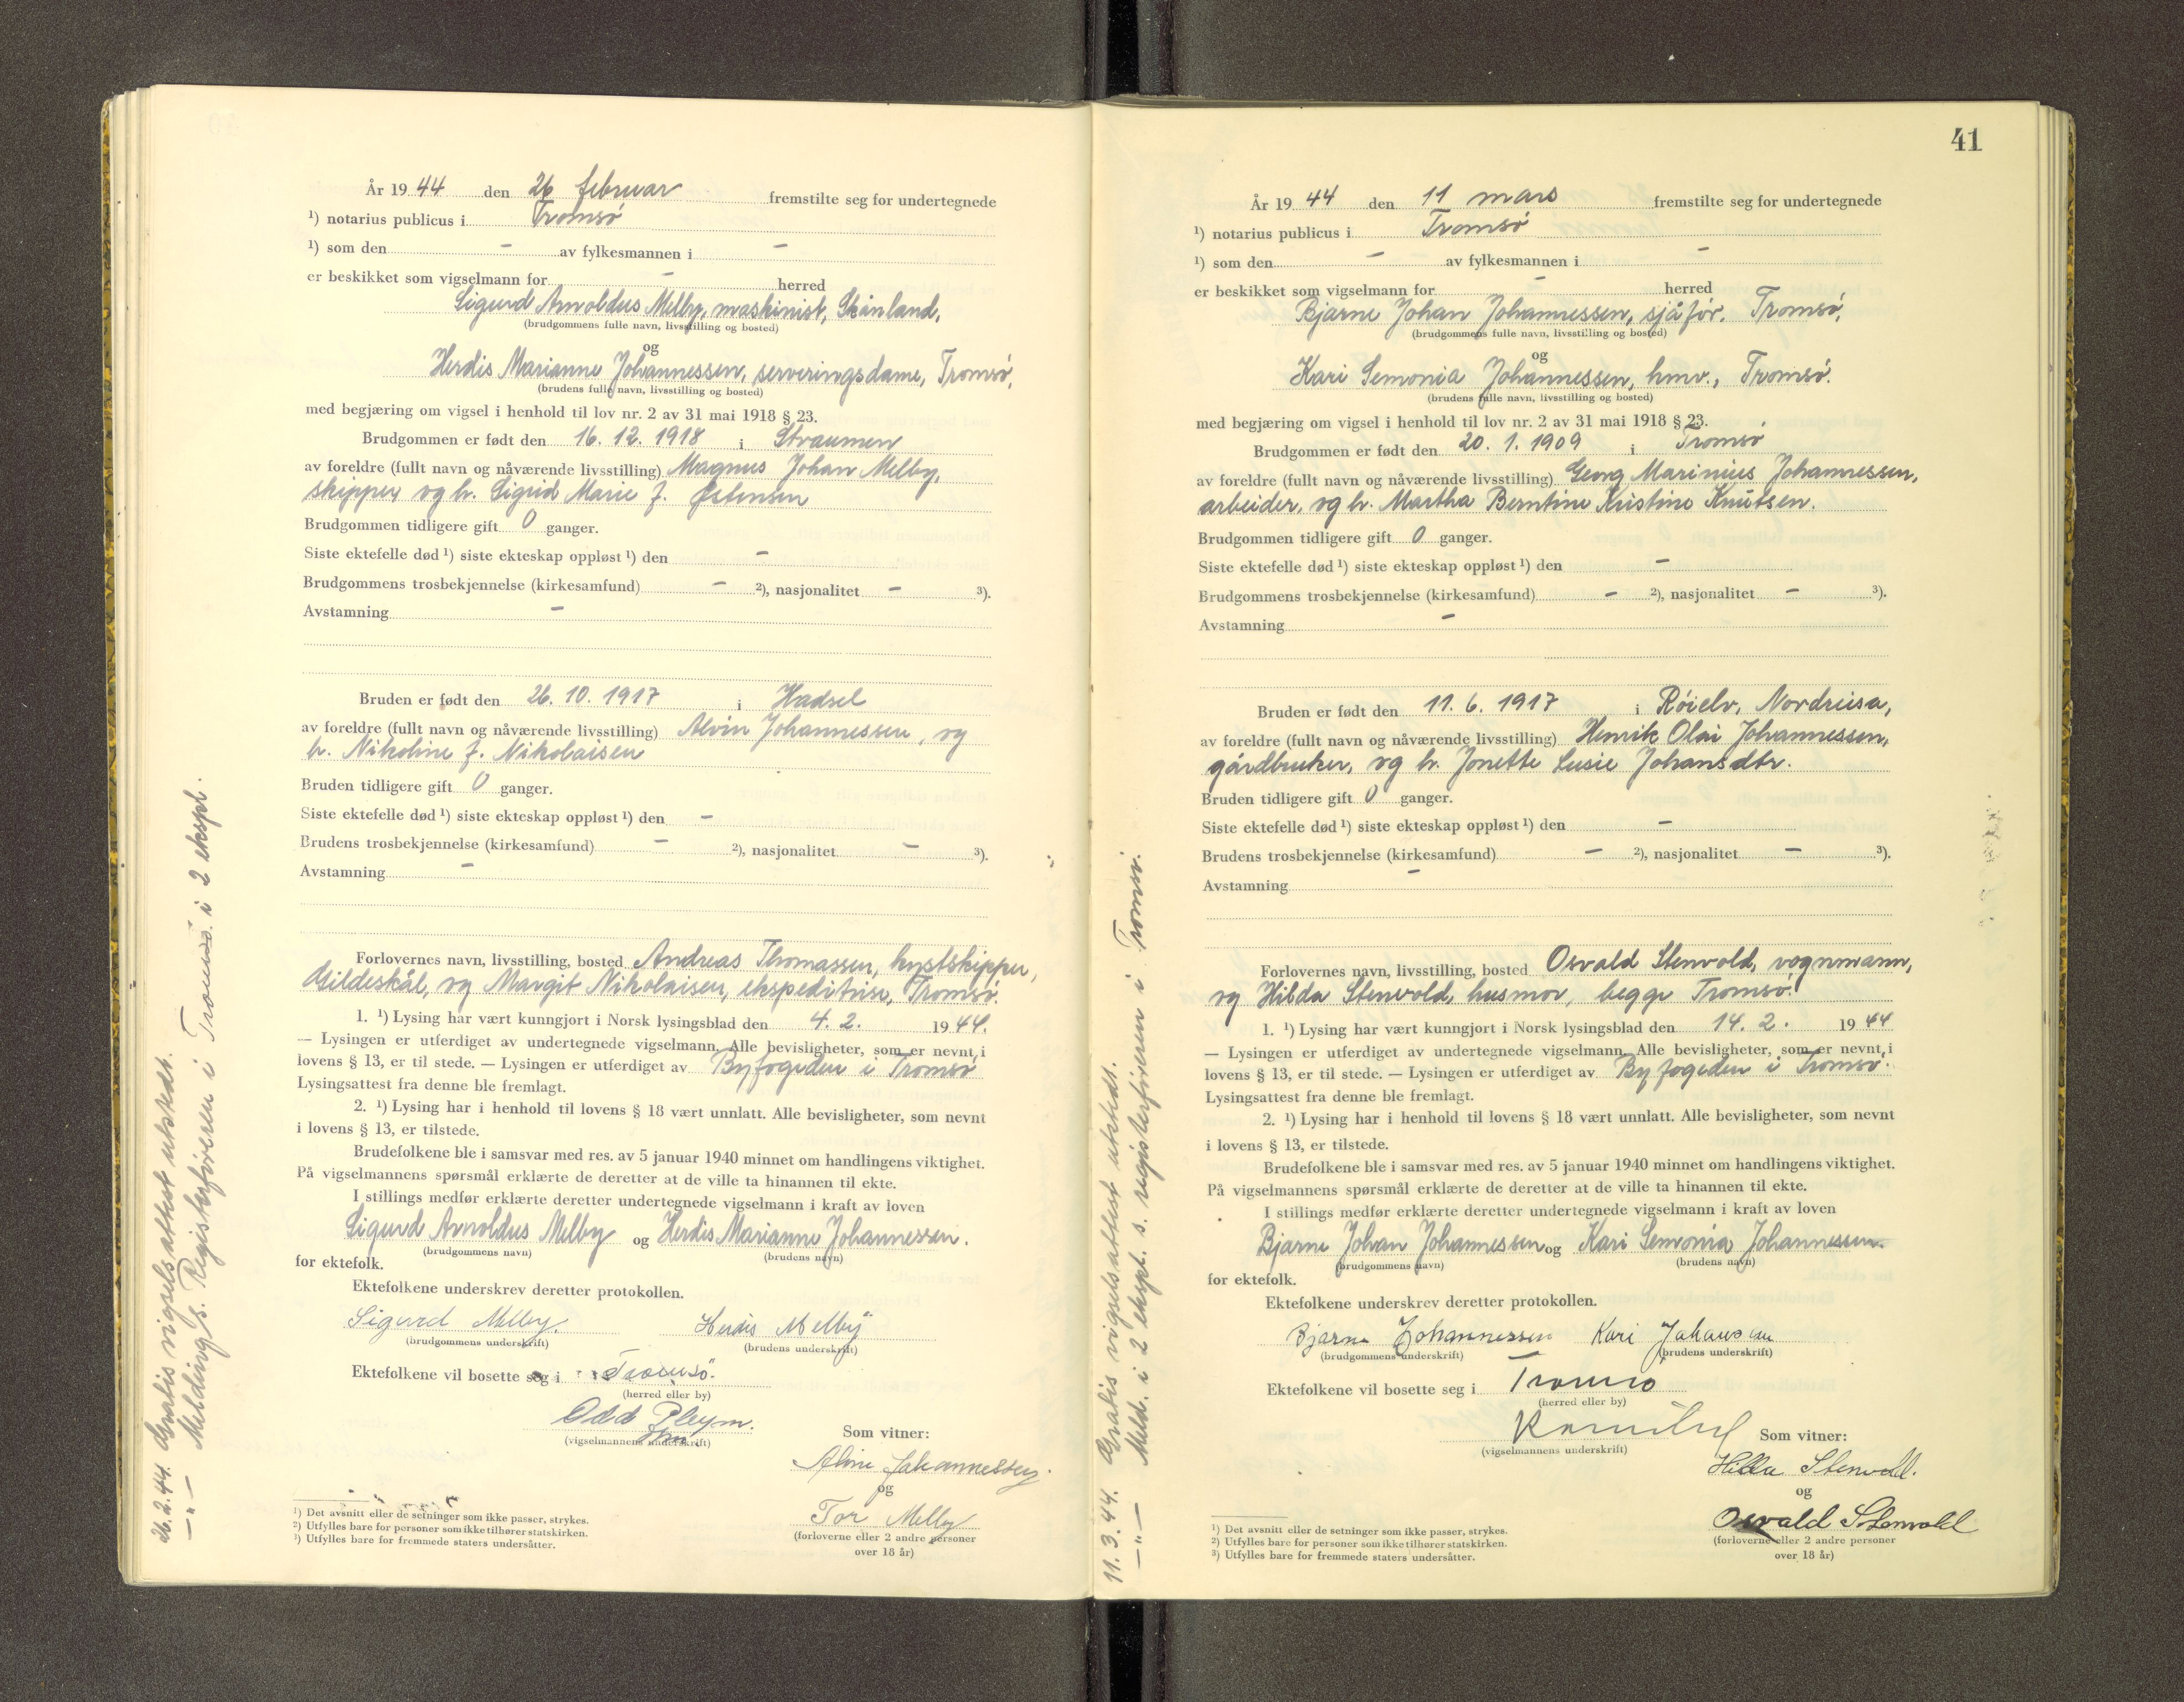 År 19 44 den 26 februar fremstilte seg for undertegnede
¹) notarius publicus i Tromsø
¹) som den - av fylkesmannen i -
er beskikket som vigselmann for - herred
Sigurd Arnoldus Melby, maskinist, Skånland,
(brudgommens fulle navn, livsstilling og bosted)
og
Herdis Marianne Johannessen, serveringsdame, Tromsø,
(brudens fulle navn, livsstilling og bosted)
med begjæring om vigsel i henhold til lov nr. 2 av 31 mai 1918 § 23.
Brudgommen er født den 16. 12. 1918 i Straumen
av foreldre (fullt navn og nåværende livsstilling) Magnus Johan Melby,
skipper og h. Sigrid Marie f. Østensen
Brudgommen tidligere gift 0 ganger.
Siste ektefelle død ¹) siste ekteskap oppløst ¹) den -
Brudgommens trosbekjennelse (kirkesamfund) - ²), nasjonalitet - ³).
Avstamning -
Bruden er født den 26. 10. 1917 i Hadsel
av foreldre (fullt navn og nåværende livsstilling) Alvin Johannessen, og
h. Nikoline f. Nikolaisen
Bruden tidligere gift 0 ganger.
Siste ektefelle død ¹) siste ekteskap oppløst ¹) den -
Brudens trosbekjennelse (kirkesamfund) - ²), nasjonalitet - ³).
Avstamning -
Forlovernes navn, livsstilling, bosted Andreas Thomassen, kystskipper,
Gildeskål, og Margit Nikolaisen, ekspeditrise, Tromsø.
1. ¹) Lysing har vært kunngjort i Norsk lysingsblad den 4. 2. 19 44.
— Lysingen er utferdiget av undertegnede vigselmann. Alle bevisligheter, som er nevnt i
lovens § 13, er til stede. — Lysingen er utferdiget av Byfogden i Tromsø
Lysingsattest fra denne ble fremlagt.
2. ¹) Lysing har i henhold til lovens § 18 vært unnlatt. Alle bevisligheter, som nevnt
i lovens § 13, er tilstede.
Brudefolkene ble i samsvar med res. av 5 januar 1940 minnet om handlingens viktighet.
På vigselmannens spørsmål erklærte de deretter at de ville ta hinannen til ekte.
I stillings medfør erklærte deretter undertegnede vigselmann i kraft av loven
Sigurd Arnoldus Melby og Herdis Marianne Johannessen.
(brudgommens navn) (brudens navn)
for ektefolk.
Ektefolkene underskrev deretter protokollen.
Sigurd Melby. Herdis Melby
(brudgommens underskrift) (brudens underskrift)
Ektefolkene vil bosette seg i Tromsö.
(herred eller by)
Odd Pleym.
(vigselmannens underskrift) Som vitner:
Johannessen.
og
Tor Melby
(forloverne eller 2 andre personer
over 18 år)
¹) Det avsnitt eller de setninger som ikke passer, strykes.
²) Utfylles bare for personer som ikke tilhører statskirken.
³) Utfylles bare for fremmede staters undersåtter.
26.2.44. Gratis vigselsattest utstedt.
—"— Melding s. Registerføreren i Tromsø i 2 ekspl.
41
År 19 44 den 11 mars fremstilte seg for undertegnede
¹) notarius publicus i Tromsø
¹) som den - av fylkesmannen i -
er beskikket som vigselmann for - herred
Bjarne Johan Johannessen, sjåfør, Tromsø,
(brudgommens fulle navn, livsstilling og bosted)
og
Kari Semonia Johannessen, hmv., Tromsø.
(brudens fulle navn, livsstilling og bosted)
med begjæring om vigsel i henhold til lov nr. 2 av 31 mai 1918 § 23.
Brudgommen er født den 20. 1. 1909 i Tromsø
av foreldre (fullt navn og nåværende livsstilling) Georg Marinius Johannessen,
arbeider, og h. Martha Berntine Kristine Knutsen.
Brudgommen tidligere gift 0 ganger.
Siste ektefelle død ¹) siste ekteskap oppløst ¹) den -
Brudgommens trosbekjennelse (kirkesamfund) - ²), nasjonalitet - ³).
Avstamning -
Bruden er født den 11. 6. 1917 i Røielv, Nordreisa,
av foreldre (fullt navn og nåværende livsstilling) Henrik Olai Johannessen,
gårdbruker, og h. Jonette Lusie Johansdtr.
Bruden tidligere gift 0 ganger.
Siste ektefelle død ¹) siste ekteskap oppløst ¹) den -
Brudens trosbekjennelse (kirkesamfund) - ²), nasjonalitet - ³).
Avstamning -
Forlovernes navn, livsstilling, bosted Osvald Stenvold, vognmann,
og Hilda Stenvold, husmor, begge Tromsø.
1. ¹) Lysing har vært kunngjort i Norsk lysingsblad den 14. 2. 19 44
— Lysingen er utferdiget av undertegnede vigselmann. Alle bevisligheter, som er nevnt i
lovens § 13, er til stede. — Lysingen er utferdiget av Byfogden i Tromsø.
Lysingsattest fra denne ble fremlagt.
2. ¹) Lysing har i henhold til lovens § 18 vært unnlatt. Alle bevisligheter, som nevnt
i lovens § 13, er tilstede.
Brudefolkene ble i samsvar med res. av 5 januar 1940 minnet om handlingens viktighet.
På vigselmannens spørsmål erklærte de deretter at de ville ta hinannen til ekte.
I stillings medfør erklærte deretter undertegnede vigselmann i kraft av loven
Bjarne Johan Johannessen og Kari Semonia Johannessen.
(brudgommens navn) (brudens navn)
for ektefolk.
Ektefolkene underskrev deretter protokollen.
Bjarne Johannessen Kari Johansen
(brudgommens underskrift) (brudens underskrift)
Ektefolkene vil bosette seg i Tromsø
(herred eller by)
Som vitner:
(vigselmannens underskrift)
Hilda Stenvold.
og
Osvald Stenvold
(forloverne eller 2 andre personer
over 18 år)
¹) Det avsnitt eller de setninger som ikke passer, strykes.
²) Utfylles bare for personer som ikke tilhører statskirken.
³) Utfylles bare for fremmede staters undersåtter.
11.3.44. Gratis vigselsattest utstedt.
—"— Meld. i 2 ekspl. s. registerføreren i Tromsø.